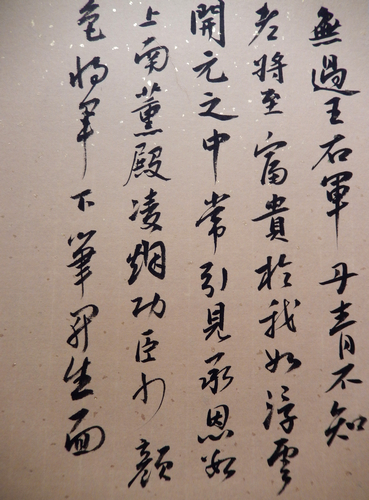 無過王右軍丹青不知
老將至富貴於我如浮雲
開元之中常引見承恩數
上南薰殿凌烟功臣少顏
色將軍下筆開生面